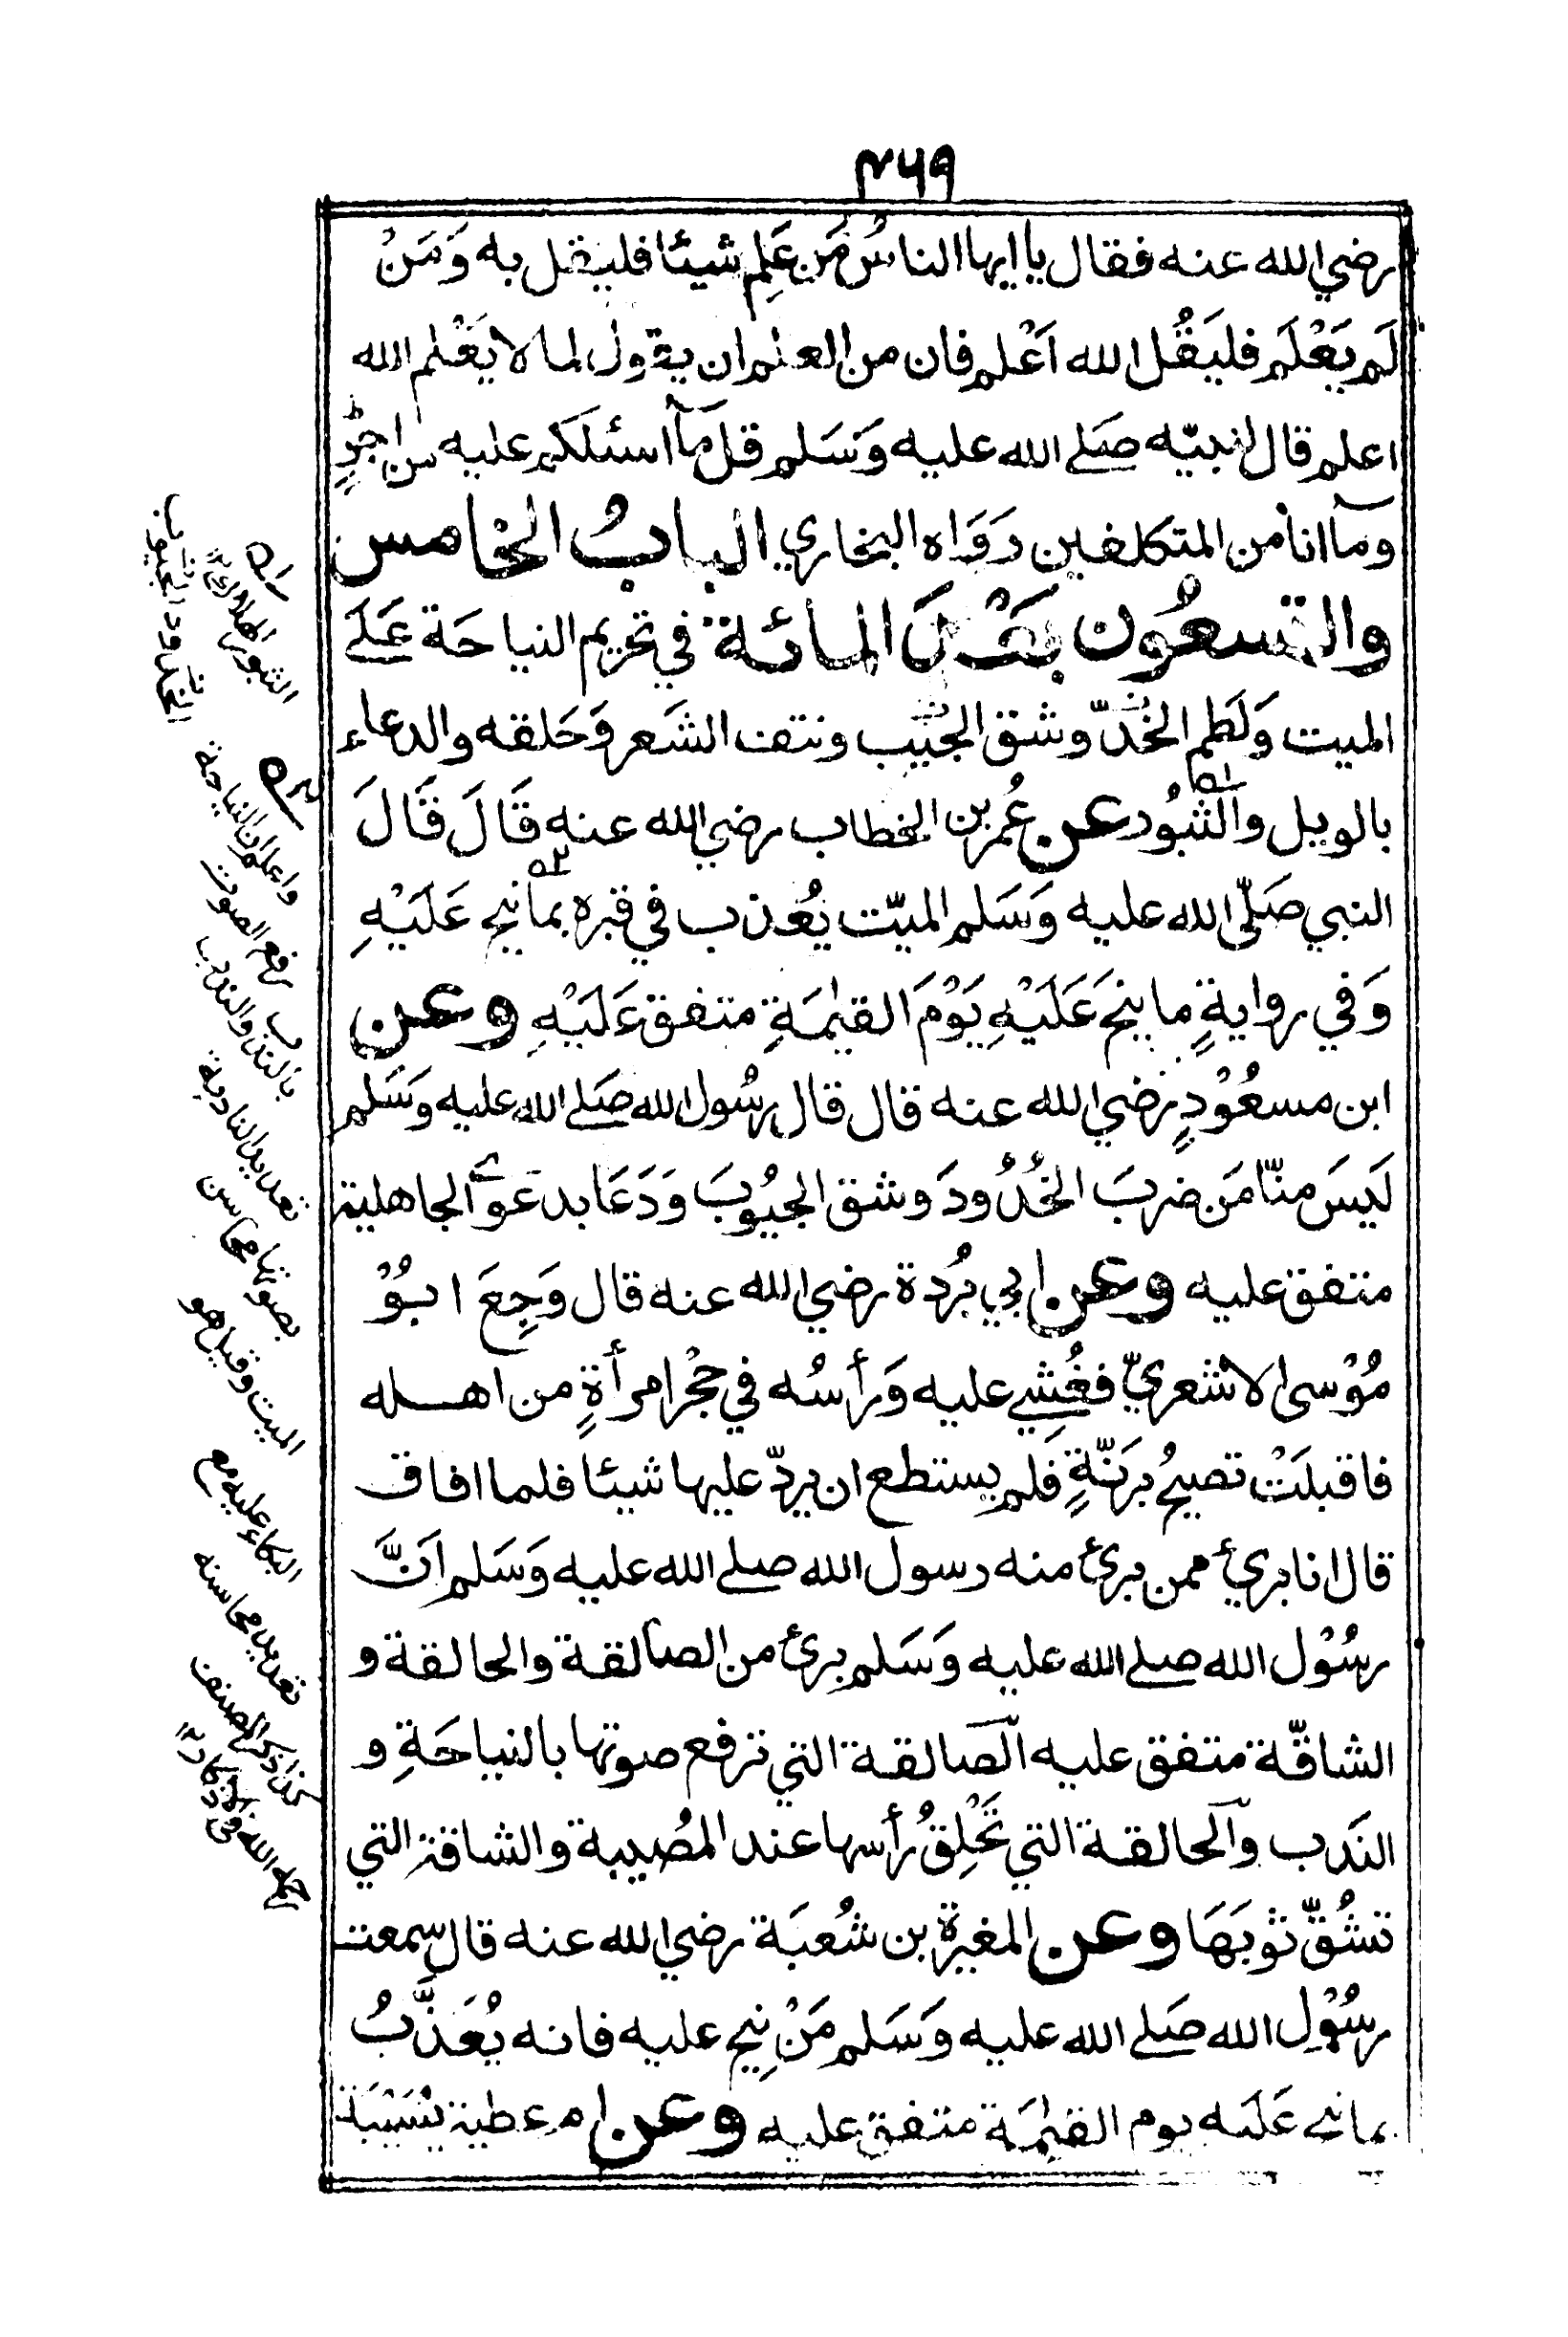 ٤٦٩
رضي الله عنه فقال يا ايها الناسُ مَن عَلِم شيئا فليقل به وَمَنْ
لَم يَعْلَم فليَقُل الله اَعْلم فان من العلم ان يقول لما لا يَعْلم الله
اعلم قال لنبيّه صَلے الله عليه وَسَلم قل مَآ اسئلكم عليه من اجرٍ
ومآ انا من المتكلفين رَوَاه البخاري البابُ الخامس
والتسعُون بَعْدَ المائة في تحريم النياحَة عَلَے
الميت وَلَطم الخَدّ وشق الجَيب ونتف الشَعر وَحَلقه والدعاء
بالويل والثبُور عن عُمر بن الخطاب رضي الله عنه قَالَ قَالَ
النبي صَلّى الله عليه وَسَلم الميّت يُعذب في قبره بما نيح عَلَيْهِ
وَفي روايةٍ ما نيحَ عَلَيْهِ يَوْمَ القيٰمَةِ متفق عَلَيْهِ وعن
ابن مسعُوْدٍ رضي الله عنه قال قال رسُول الله صَلے الله عليه وَسَلم
لَيسَ منّا مَن ضربَ الخُدُودَ وشق الجيُوبَ وَدَعَا بدعوَے الجاهلية
متفق عليه وعن ابي بُردة رضي الله عنه قال وَجِعَ ابُوْ
مُوْسى الاشعريّ فغُشِي عليه وَرأسُه في حَجْر امرأةٍ من اهله
فاقبلَتْ تصيحُ برَنّةٍ فلم يستطع ان يردّ عليها شيئا فلما افاق
قال انا برئ ممن برئ منه رسول الله صلے الله عليه وَسَلم اَنَّ
رسُوْل الله صلے الله عليه وَسَلم برئ من الصالقة والحالقة و
الشاقّة متفق عليه الصّالقة التي ترفع صوتها بالنياحَةِ و
النَدب والحالقة التي تَحْلِقُ رأسها عند المصُيبة والشاقة التي
تشُقّ ثوبَهَا وعن المغيرة بن شُعبَة رضي الله عنه قال سمعت
رسُوْل الله صَلے الله عليه وَسَلم مَنْ نِيح عليه فانه يُعَذَّبُ
بما نيح عَلَيه يوم القيٰمَة متفق عليه وعن ام عطية نُسَيْبَة
٥١
الثبور الهلاك ١٢
٥٢
واعلم ان النياحة
رفع الصوت
بالندب والندب
تعديد النادبة
بصوتها محاسن
الميت وقيل هو
البكاء عليه مع
تعديد محاسنه
كذا ذكر المصنف
رحمه الله في الاذكار ١٢